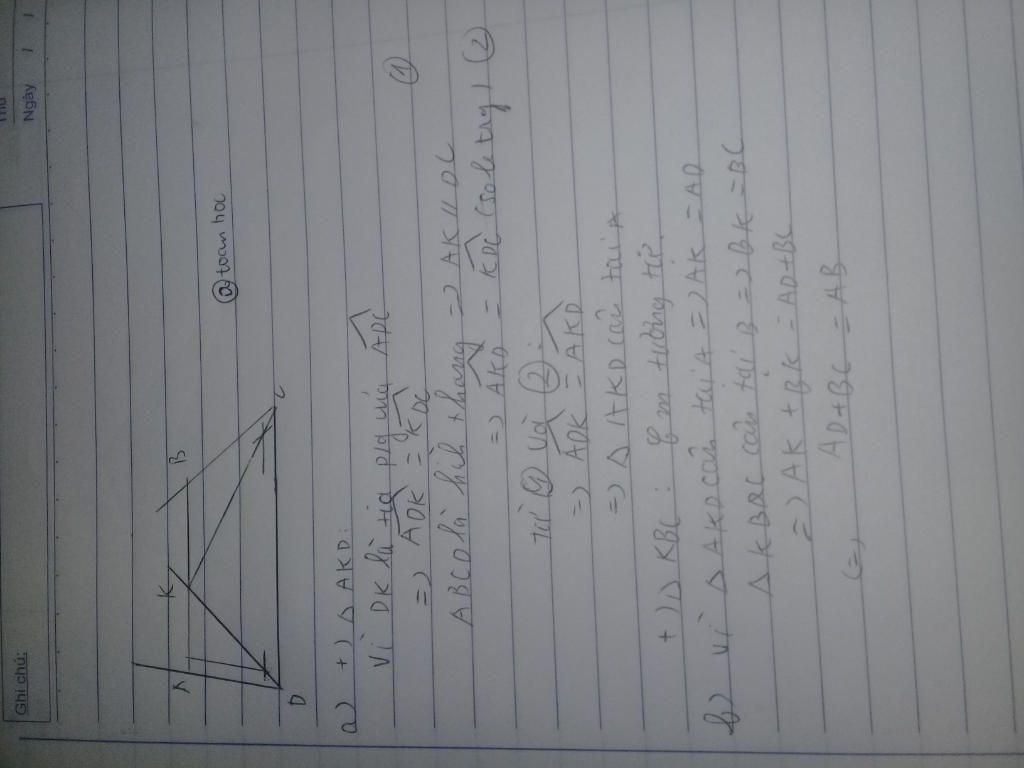 Ghi chú:
Thứ
Ngày / /
@toanhoc
A K B
D C
a) +) Δ AKD:
Vì DK là tia p/g của ADC
=> ADK = KDC (1)
ABCD là hình thang => AK // DC
=> AKD = KDC (sole trg) (2)
Từ (1) và (2):
=> ADK = AKD
=> Δ AKD cân tại A
+) Δ KBC: tương tự.
b) Vì Δ AKD cân tại A => AK = AD
Δ KBC cân tại B => BK = BC
=> AK + BK = AD + BC
(=) AD + BC = AB